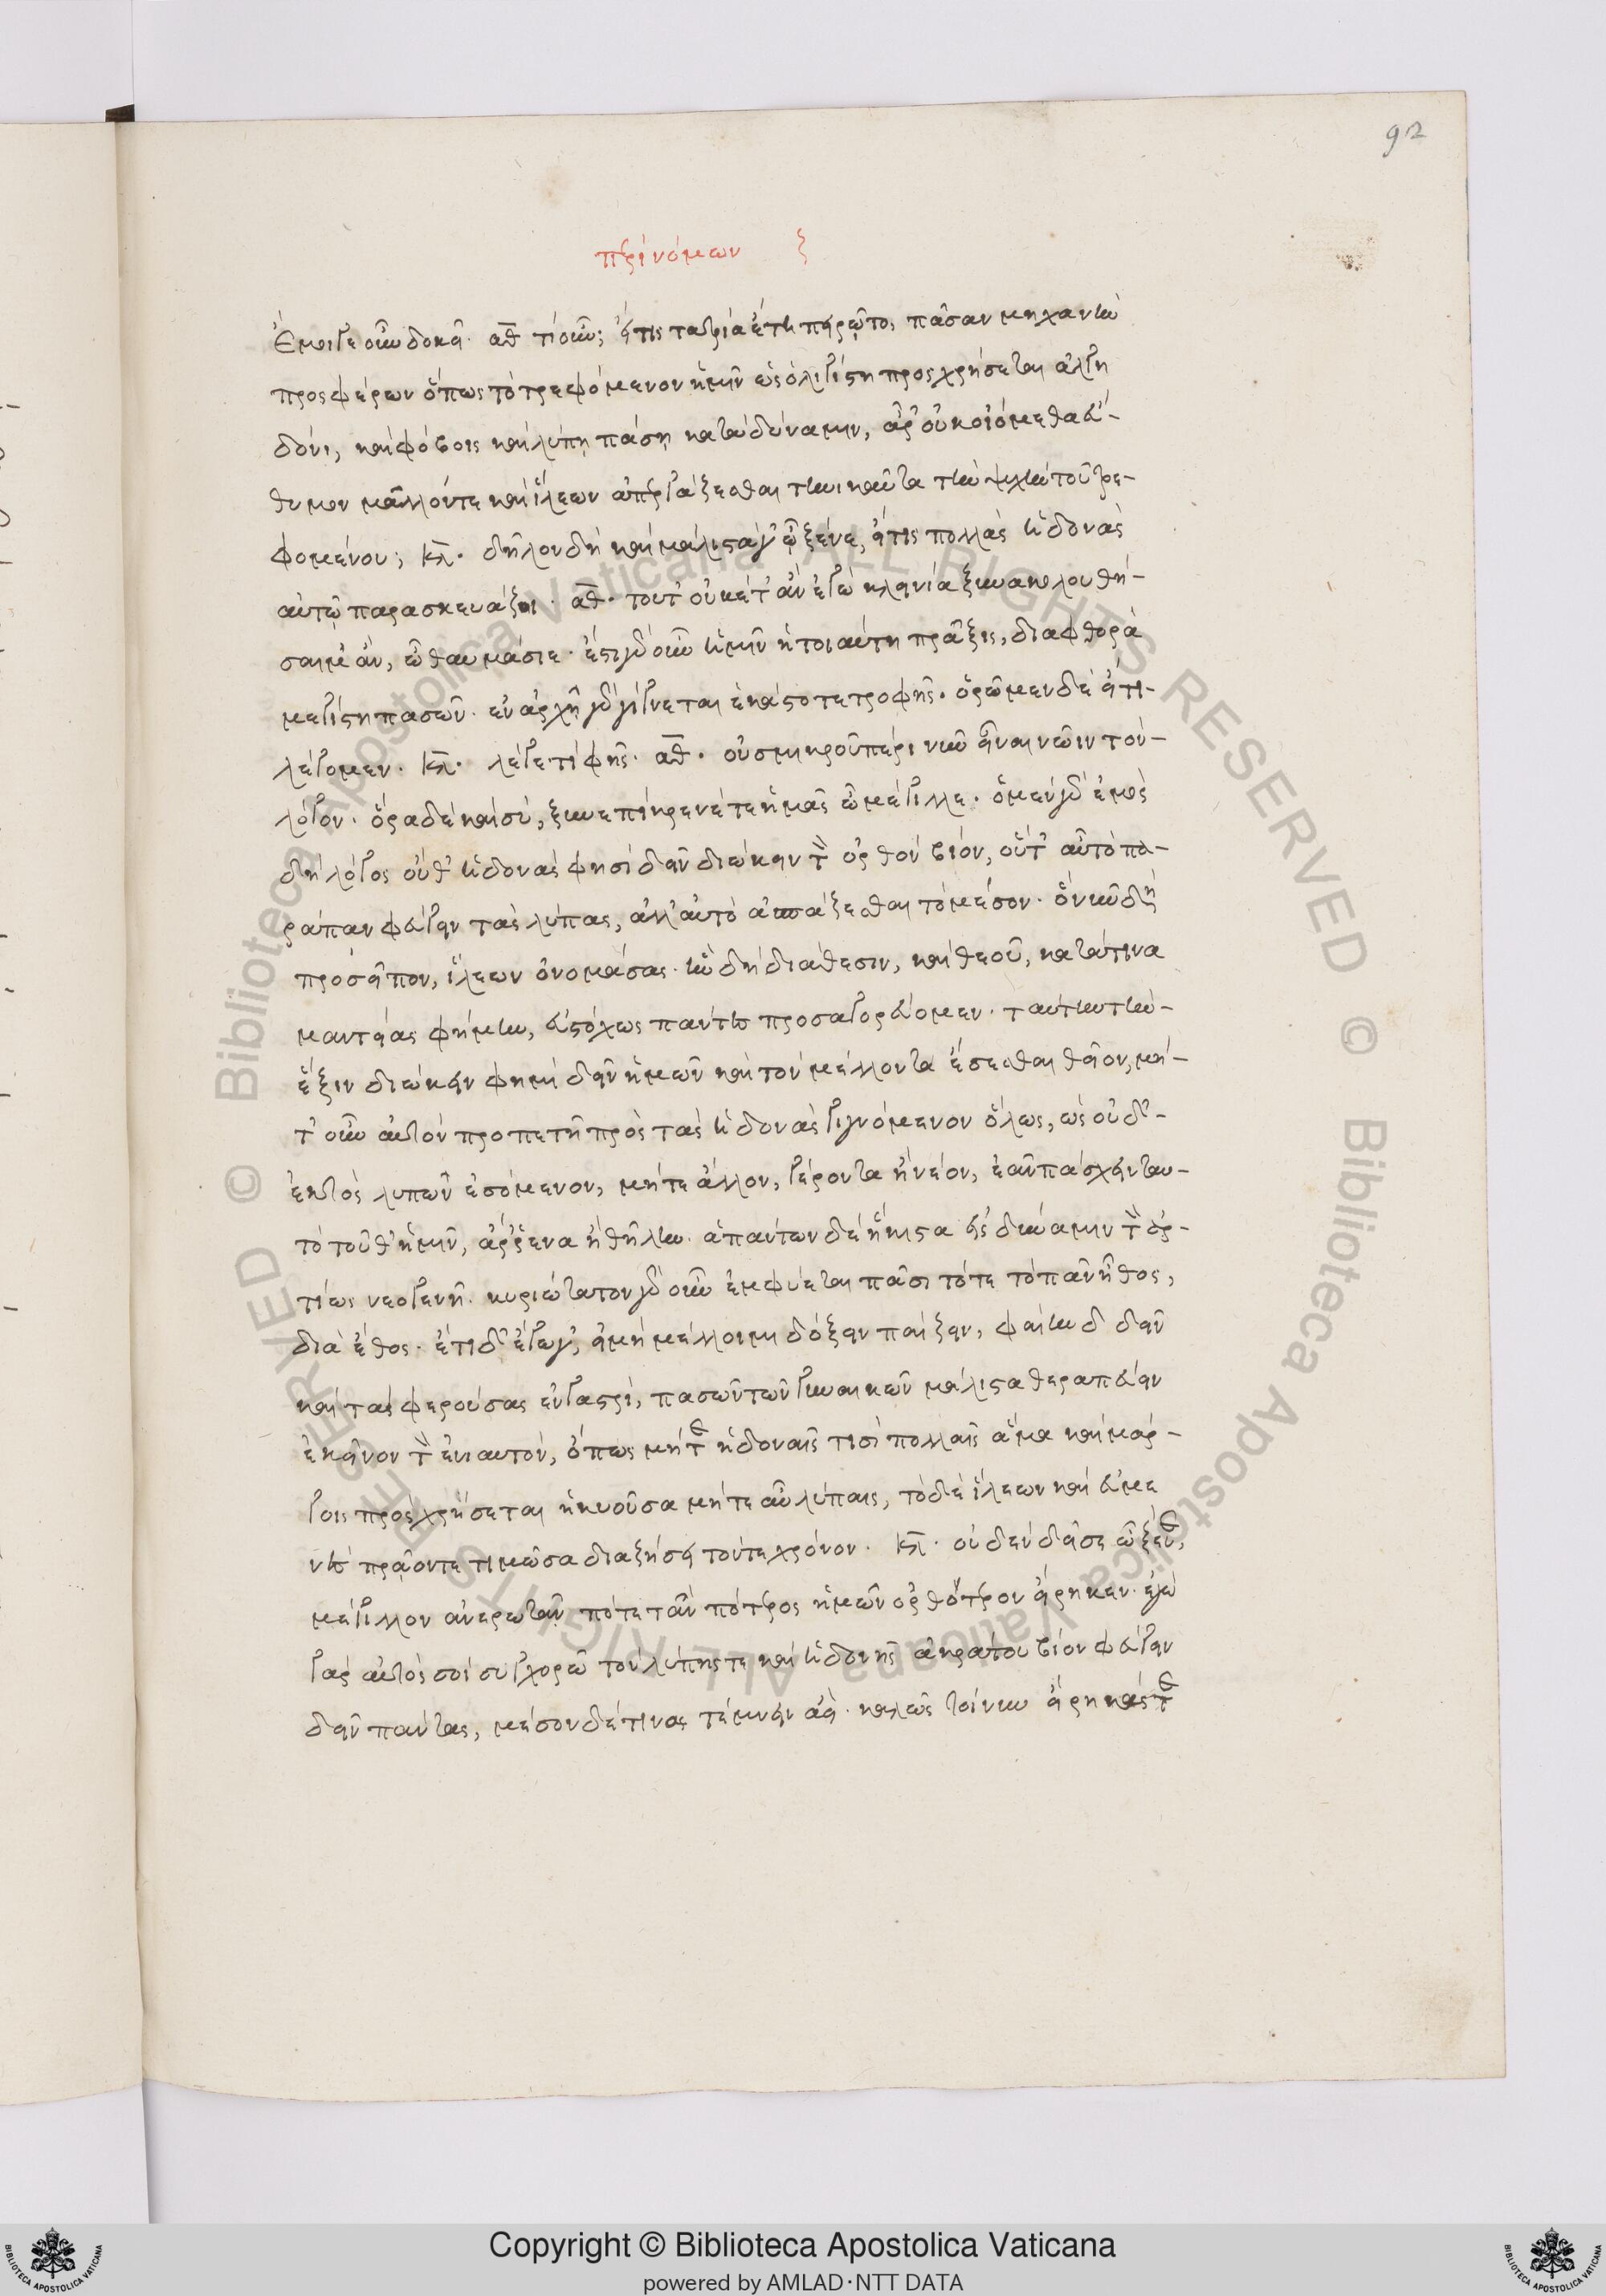 92
περὶ νόμων ζ
Ἔμοιγε οὖν δοκεῖ. ἀθ τί οὖν; εἴ τις τὰ τρία ἔτη πειρῷτο, πᾶσαν μηχανὴν
προσφέρων ὅπως τὸ τρεφόμενον ἡμῖν ὡς ὀλιγίστη προσχρήσεται ἀλγη
δόνι, καὶ φόβοις καὶ λύπη πάση κατὰ δύναμιν, ἆρ' οὐκ οἰόμεθα εὐ-
θυμον μᾶλλόν τε καὶ ἵλεων ἀπεργάζεσθαι τηνικαῦτα τὴν ψυχὴν τοῦ τρε-
φομένου; κλ. δῆλον δὴ καὶ μάλιστά γ' ὦ ξένε, εἴ τις πολλὰς ἡδονὰς
αὐτῷ παρασκευάζοι. ἀθ. τοῦτ' οὐκέτ' ἂν ἐγὼ κλεινία ξυνακολουθή-
σαιμ' ἂν, ὦ θαυμάσιε. ἔστι γὰρ οὖν ἡμῖν ἡ τοιαύτη πρᾶξις, διαφθορὰ
μεγίστη πασῶν. ἐν ἀρχῇ γὰρ γίγνεται ἑκάστοτε τροφῆς. ὁρῶμεν δὲ εἴ τι
λέγομεν. κλ. λέγε τί φῄς. ἀθ. οὐ σμικροῦ πέρι νῦν εἶναι νῶιν τὸν
λόγον. ὅρα δὲ καὶ σύ, ξυνεπίκρενέ τε ἡμᾶς ὦ μέγιλλε. ὁ μὲν γὰρ ἐμὸς
δὴ λόγος οὔθ' ἡδονάς φησι δεῖν διώκειν τὸν ὀρθὸν βίον, οὔτ' αὖ τὸ πα-
ράπαν φεύγειν τὰς λύπας, ἀλλ' αὐτὸ ἀσπάζεσθαι τὸ μέσον. ὃ νῦν δὴ
προσεῖπον, ἵλεων ὀνομάσας. ἣν δὴ διάθεσιν, καὶ θεοῦ, κατά τινα
μαντείας φήμην, εὐστόχως πάντες προσαγορεύομεν. ταύτην τὴν
ἕξιν διώκειν φημὶ δεῖν ἡμῶν καὶ τὸν μέλλοντα ἔσεσθαι θεῖον, μή-
τ' οὖν αὐτὸν προπετῆ πρὸς τὰς ἡδονὰς γιγνόμενον ὅλως, ὡς οὐδ'
ἐκτὸς λυπῶν ἐσόμενον, μήτε ἄλλον, γέροντα ἢ νέον, ἐᾶν πάσχειν ταυ-
τὸ τοῦθ' ἡμῖν, ἄρρενα ἢ θῆλυν. ἁπάντων δὲ ἥκιστα εἰς δύναμιν τὸν ἀρ-
τίως νεογενῆ. κυριώτατον γὰρ οὖν ἐμφύεται πᾶσι τότε τὸ πᾶν ἦθος,
διὰ ἔθος. ἔτι δ' ἔγωγ', εἰ μὴ μέλλοιμι δόξειν παίζειν, φαίην δ δεῖν
καὶ τὰς φερούσας ἐν γαστρί, πασῶν τῶν γυναικῶν μάλιστα θεραπεύειν
ἐκεῖνον τὸν ἐνιαυτόν, ὅπως μήτε ἡδοναῖς τισὶ πολλαῖς ἅμα καὶ μάρ-
γοις προσχρήσεται ἡ κυοῦσα μήτε αὖ λύπαις, τὸ δὲ ἵλεων καὶ εὐμε
νὲς πρᾷόν τε τιμῶσα διαζήσει τὸν τότε χρόνον. κλ. οὐδὲν δεῖ σε ὦ ξένε,
μέγιλλον ἀνερωτᾶν πότε τᾶν πότερος ἡμῶν ὀρθότερον εἴρηκεν. ἐγὼ
γὰρ αὐτός σοι συγχωρῶ τὸν λύπης τε καὶ ἡδονῆς ἀκράτου βίον φεύγειν
δεῖν πάντας, μέσον δέ τινας τέμνειν ἀεί. καλῶς τοίνυν εἴρηκάς τε
Copyright © Biblioteca Apostolica Vaticana
powered by AMLAD·NTT DATA